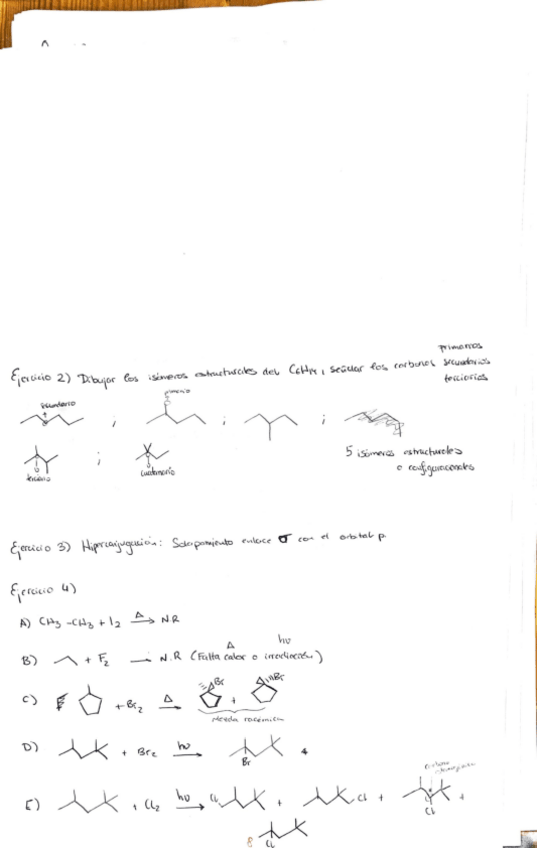 primarios
Ejercicio 2) Dibujar los isómeros estructurales del C6H14, señalar los carbonos secundarios
terciarios
secundario
primario
; ; ;
5 isómeros estructurales
o configuracionales
;
terciario
cuaternario
Ejercicio 3) Hiperconjugación: Solapamiento enlace σ con el orbital p.
Ejercicio 4)
A) CH3-CH3 + I2 Δ→ N.R
B) + F2 → N.R (Falta calor o irradiación)
Δ hν
C) + Br2 Δ→ Br + Br
Mezcla racémica
D) + Br2 hν→ Br +
E) + Cl2 hν→ Cl + Cl + Cl +
Cl